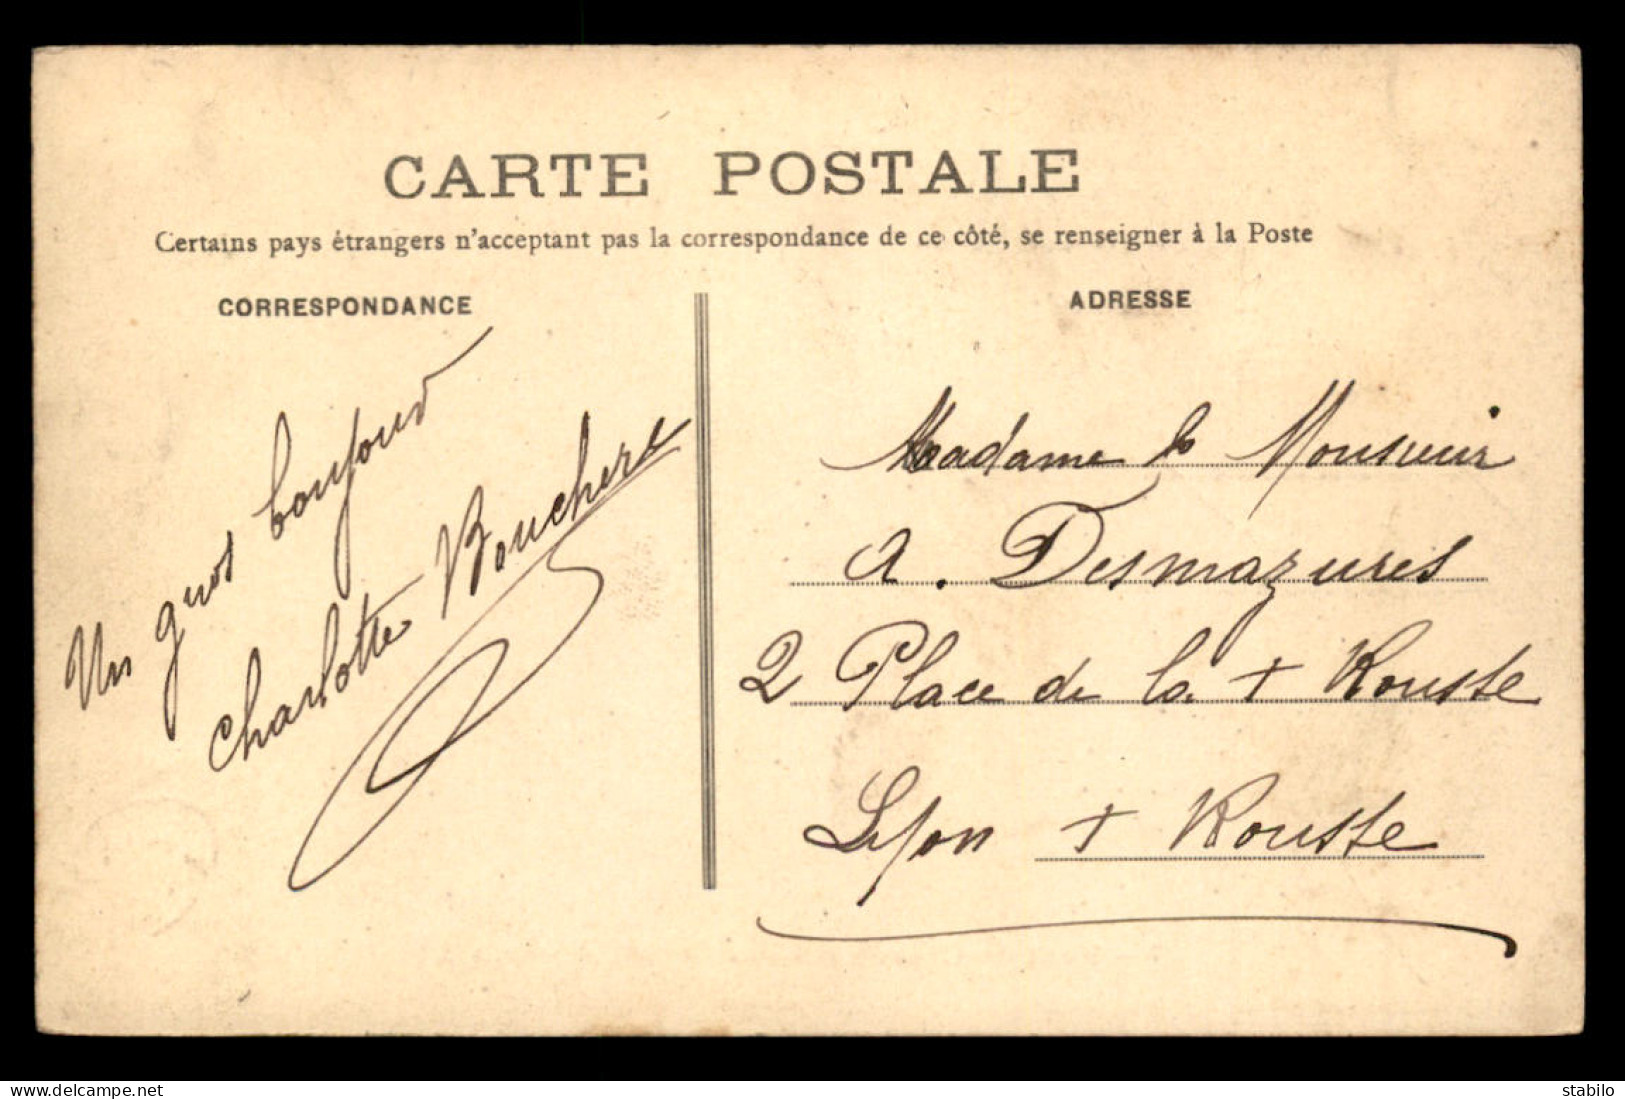 CARTE POSTALE
Certains pays étrangers n'acceptant pas la correspondance de ce côté, se renseigner à la Poste
CORRESPONDANCE
Un gros bonjour
Charlotte Bouchere
ADRESSE
Madame & Monsieur
A. Desmazures
2 Place de la + Rousse
Lyon + Rousse
www.delcampe.net
stabilo